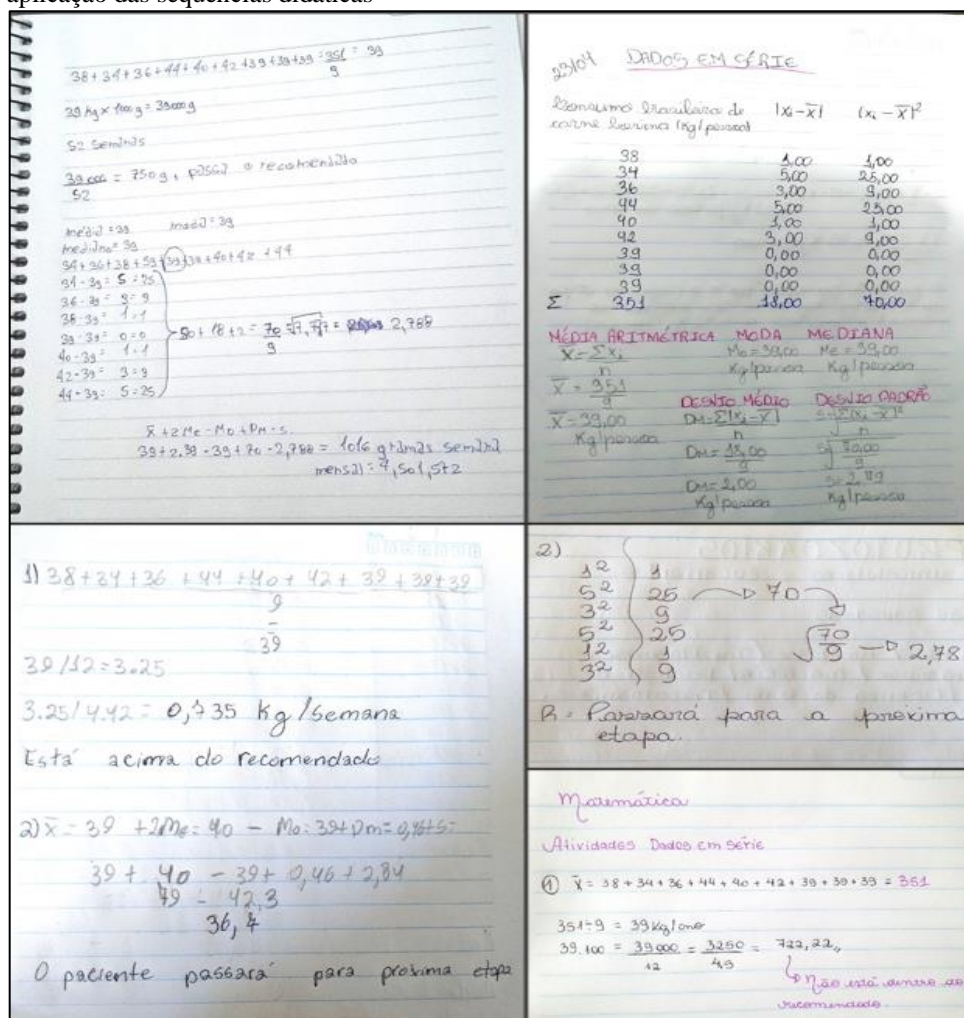 aplicação das sequências didáticas
38+34+36+44+40+42+39+39+39 = 351 = 39
9
39 kg × 1000 g = 39000 g
52 semanas
39 000 = 750 g, passa o recomendado
52
média = 39 moda = 39
mediana = 39
34+36+38+39+39+39+40+42+44
34-39 = 5 = 25
36-39 = 3 = 9
38-39 = 1 = 1
39-39 = 0 = 0
40-39 = 1 = 1
42-39 = 3 = 9
44-39 = 5 = 25
50+18+2 = 70 = √7,77 = 2,788
9
x̄ + 2Me - Mo + DM - s.
39 + 2.39 - 39 + 70 - 2,788 = 1016 gramas semana
mensal =
23/04 DADOS EM SÉRIE
Consumo brasileiro de carne bovina (kg/pessoa) |xi-x̄| (xi-x̄)²
38 1,00 1,00
34 5,00 25,00
36 3,00 9,00
44 5,00 25,00
40 1,00 1,00
42 3,00 9,00
39 0,00 0,00
39 0,00 0,00
39 0,00 0,00
Σ 351 18,00 70,00
MÉDIA ARITMÉTRICA MODA MEDIANA
x̄ = Σxi Mo = 39,00 Me = 39,00
n Kg/pessoa Kg/pessoa
x̄ = 351
9 DESVIO MÉDIO DESVIO PADRÃO
x̄ = 39,00 DM = Σ|xi-x̄| s = √Σ(xi-x̄)²
Kg/pessoa n n
DM = 18,00 s = √70,00
9 9
DM = 2,00 s = 2,79
Kg/pessoa Kg/pessoa
1) 38+34+36+44+40+42+39+39+39
9
=
39
39/12 = 3.25
3.25/4.42 = 0,735 kg/semana
Está acima do recomendado
2) x̄ = 39 + 2Me = 40 - Mo = 39 + Dm = 0,46 + s =
39 + 40 - 39 + 0,46 + 2,84
79 - 42,3
36,7
O paciente passará para próxima etapa
2)
1² 1
5² 25 → 70
3² 9
5² 25 √70/9 → 2,78
1² 1
3² 9
R = Passará para a próxima
etapa.
Matemática
Atividades Dados em Série
1 x̄ = 38+34+36+44+40+42+39+39+39 = 351
351÷9 = 39 Kg/ano
39.100 = 39000 = 3250 = 722,22
12 4,5
Não está dentro do
recomendado.